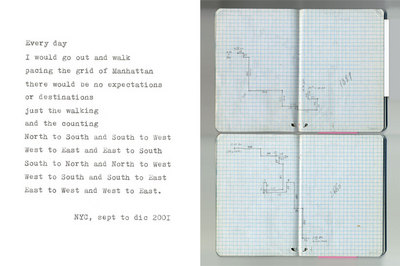 Every day
I would go out and walk
pacing the grid of Manhattan
there would be no expectations
or destinations
just the walking
and the counting
North to South and South to West
West to East and East to South
South to North and North to West
West to South and South to East
East to West and West to East.
NYC, sept to dic 2001